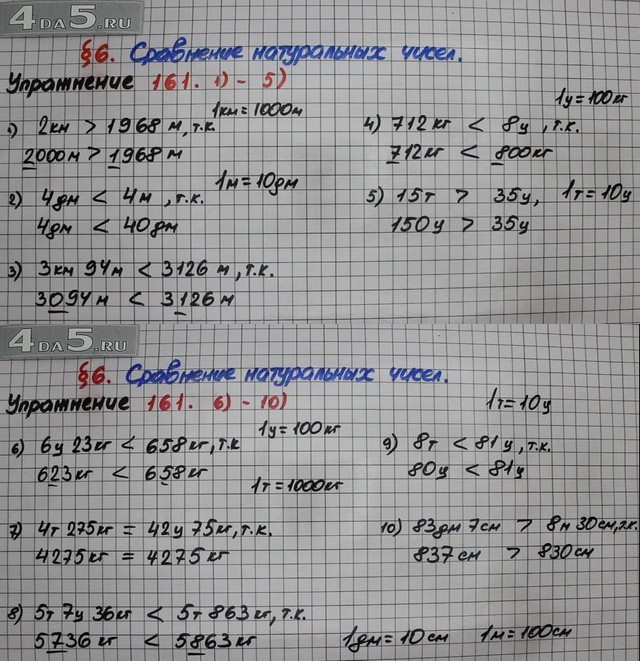 4DA5.RU
§6. Сравнение натуральных чисел.
Упражнение 161. 1) - 5)
1км = 1000м
1) 2км > 1968 м, т.к.
2000м > 1968 м
1м = 10дм
2) 4дм < 4м, т.к.
4дм < 40дм
3) 3км 94м < 3126 м, т.к.
3094м < 3126м
1ц = 100кг
4) 712кг < 8ц, т.к.
712кг < 800кг
5) 15т > 35ц, 1т = 10ц
150ц > 35ц
4DA5.RU
§6. Сравнение натуральных чисел.
Упражнение 161. 6) - 10)
1ц = 100кг
6) 6ц 23кг < 658кг, т.к
623кг < 658кг
1т = 1000кг
7) 4т 275кг = 42ц 75кг, т.к.
4275кг = 4275кг
8) 5т 7ц 36кг < 5т 863кг, т.к.
5736кг < 5863кг
1т = 10ц
9) 8т < 81ц, т.к.
80ц < 81ц
10) 83дм 7см > 8м 30см, т.к.
837см > 830см
1дм = 10см 1м = 100см